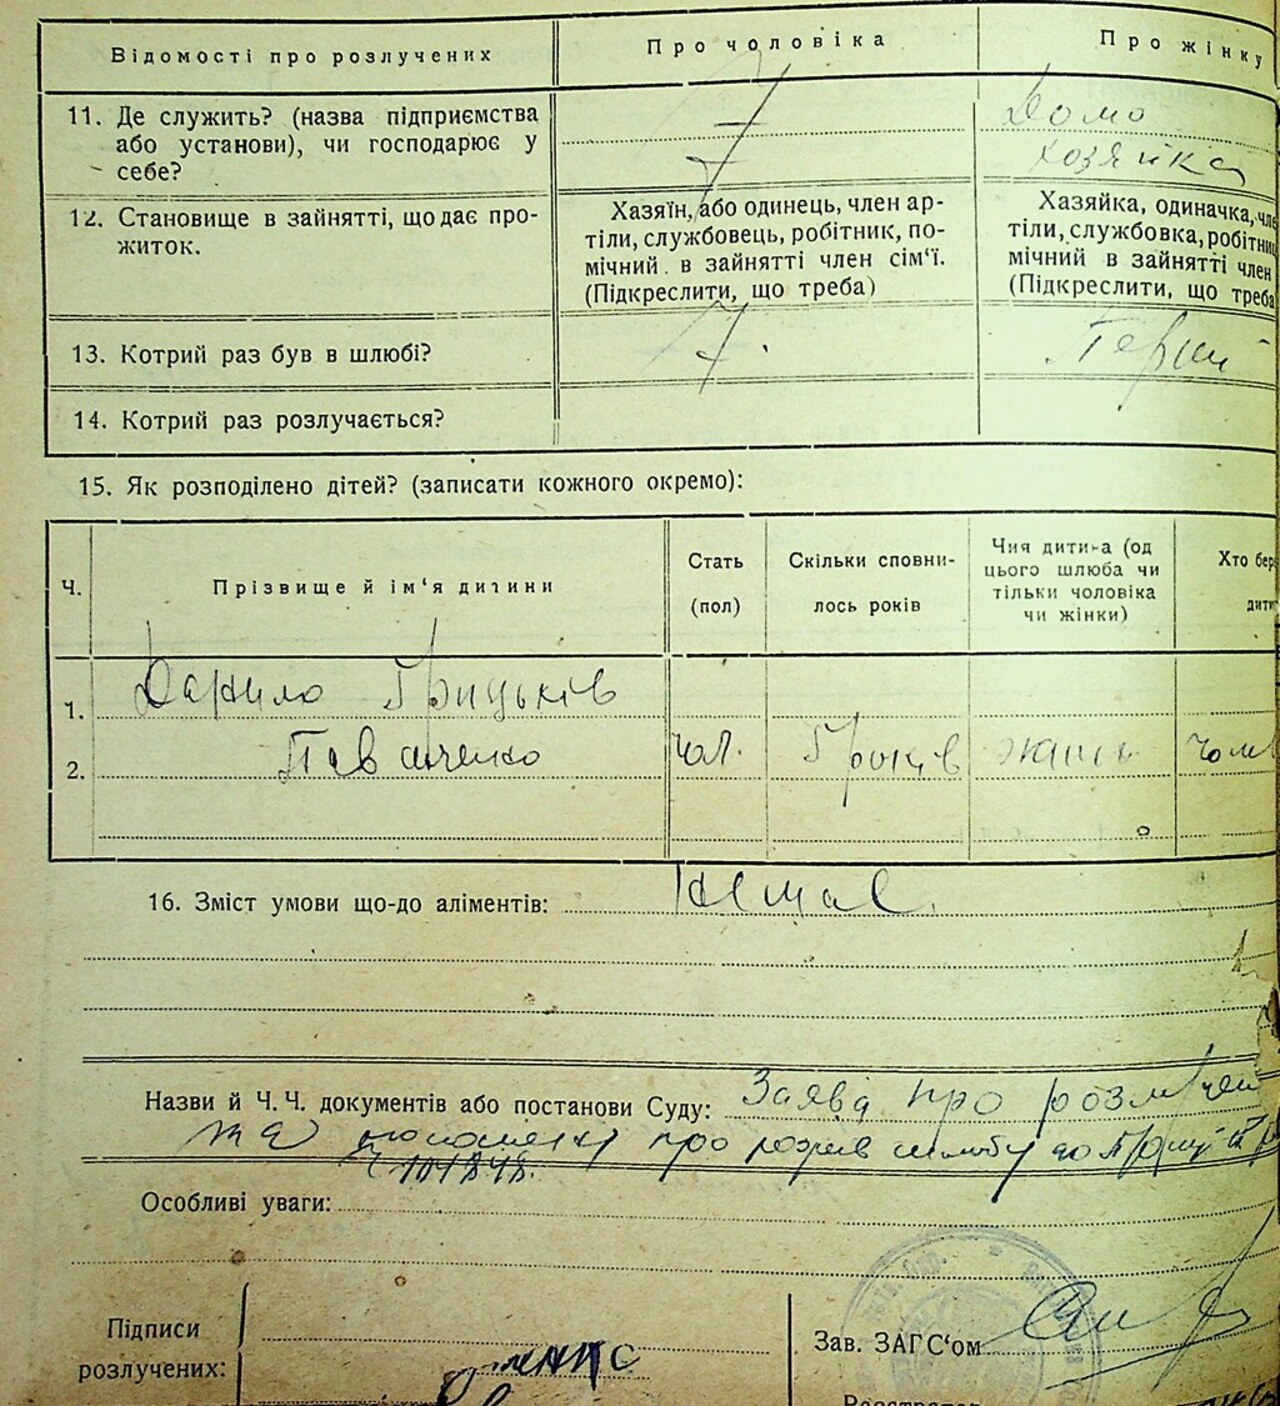 Відомості про розлучених
Про чоловіка
Про жінку
11. Де служить? (назва підприємства
або установи), чи господарює у
себе?
Домо
хозяйка
12. Становище в зайнятті, що дає про-
житок.
Хазяїн, або одинець, член ар-
тіли, службовець, робітник, по-
мічний в зайнятті член сім‘ї.
(Підкреслити, що треба)
Хазяйка, одиначка, чле
тіли, службовка, робітни
мічний в зайнятті член
(Підкреслити, що треба
13. Котрий раз був в шлюбі?
Перши
14. Котрий раз розлучається?
15. Як розподілено дітей? (записати кожного окремо):
Ч.
Прізвище й ім‘я дитини
Стать
(пол)
Скільки сповни-
лось років
Чия дитина (од
цього шлюба чи
тільки чоловіка
чи жінки)
Хто бер
дити
1. Данило Грицьків
2. чол. років
16. Зміст умови що-до аліментів: Немає.
Назви й Ч. Ч. документів або постанови Суду: Заява про
про розрив шлюбу до
Особливі уваги:
Підписи
розлучених:
Зав. ЗАГС‘ом